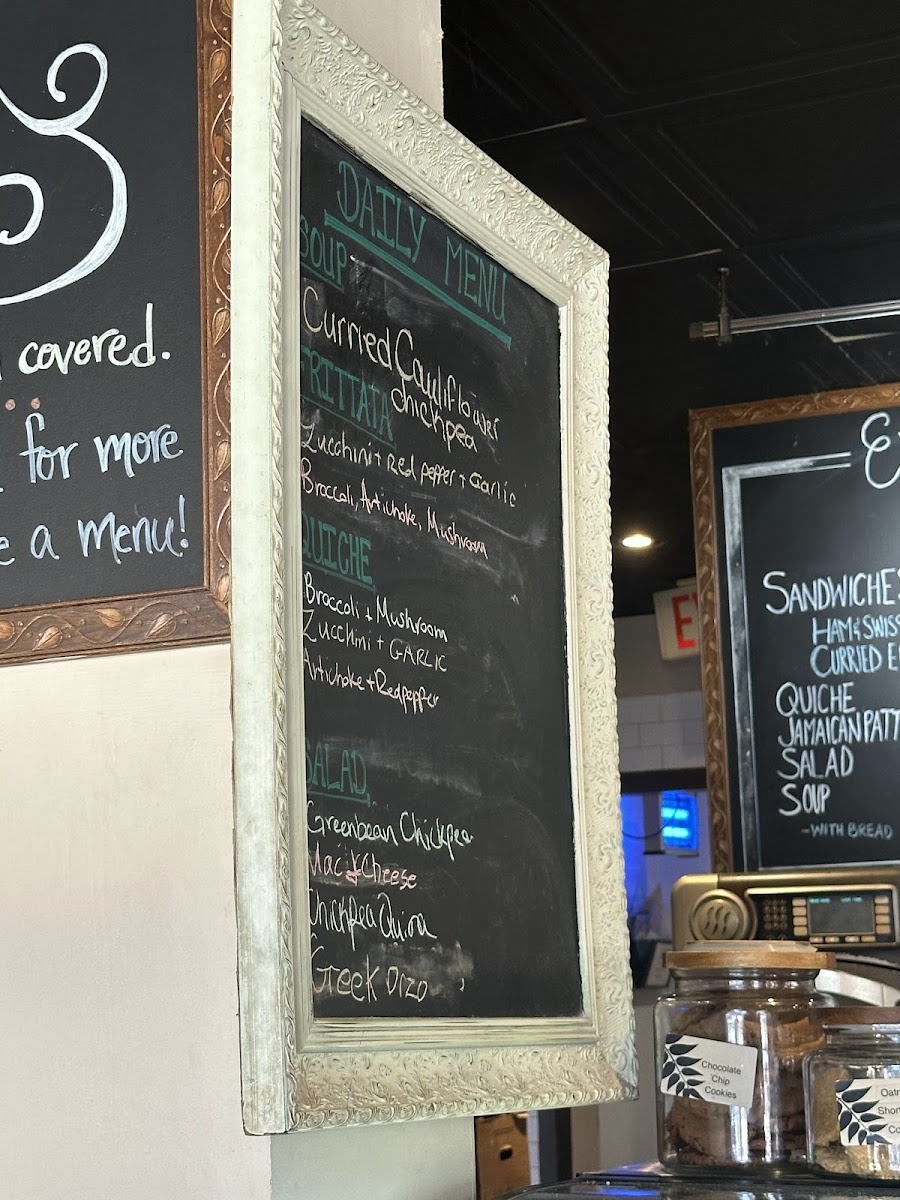 covered.
for more
a menu!
DAILY MENU
SOUP
Curried Cauliflower
chickpea
FRITTATA
Zucchini + Red pepper + Garlic
Broccoli, Artichoke, Mushroom
QUICHE
Broccoli + Mushroom
Zucchini + GARLIC
Artichoke + Redpepper
SALAD
Greenbean Chickpea
Mac & Cheese
Chickpea Quina
Greek Orzo
SANDWICHES
HAM & SWISS
CURRIED
QUICHE
JAMAICAN PATT
SALAD
SOUP
-WITH BREAD
Chocolate
Chip
Cookies